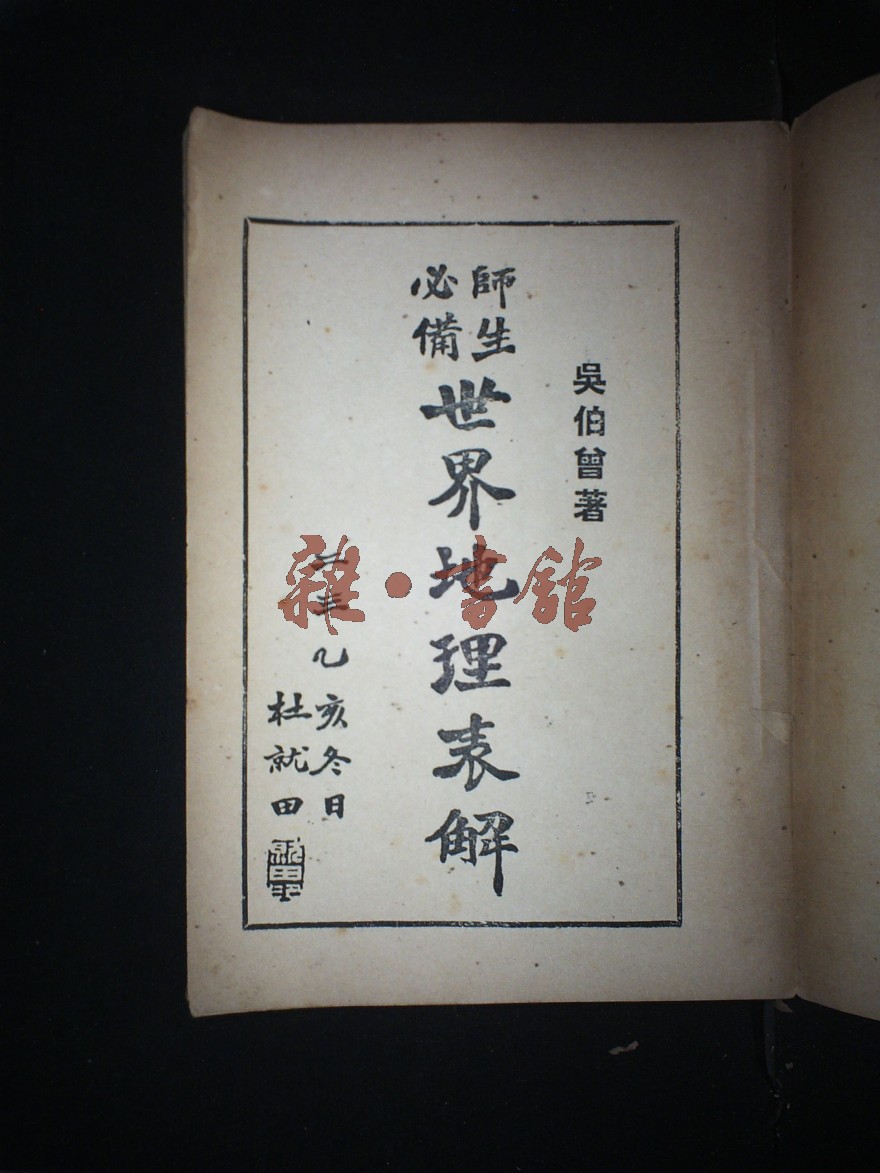 吳伯曾著
師生
必備
世界地理表解
乙亥冬日
杜就田
雜·書館